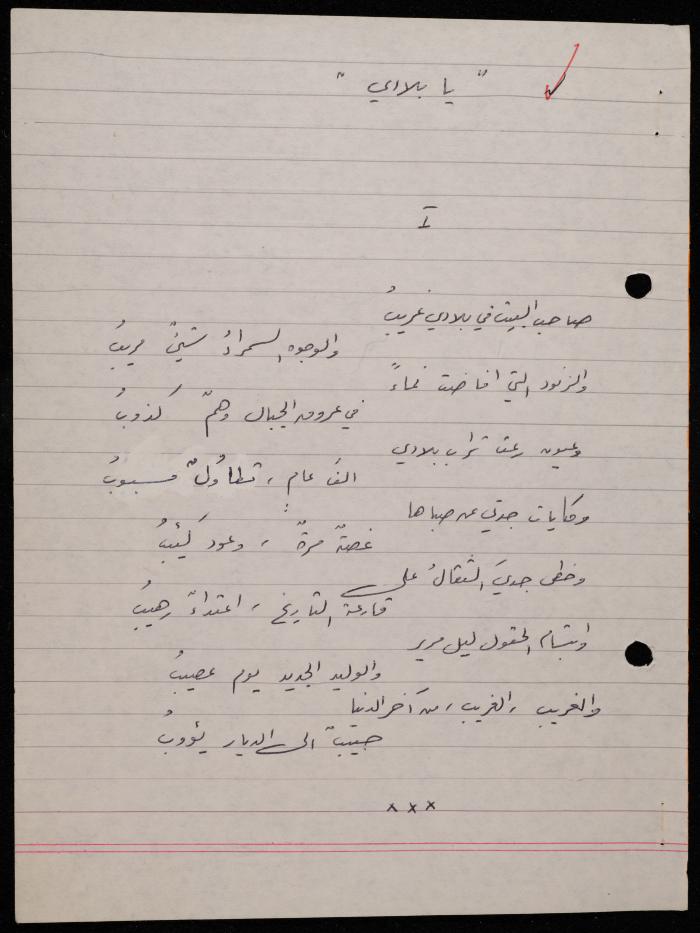 " يا بلادي "
I
صاحب البيت في بلادي غريبُ
والوجوه السمراءُ شيءٌ مريبُ
والزنود التي افاضت نماءً
في عروق الجبال وهمٌ كذوبُ
وعيون رعت تراب بلادي
الفَ عام ، تطاولٌ مسبوبُ
وحكايات جدتي عن صباها
غصةٌ مرةٌ ، وعود كئيبُ
وخطى جديَ الثقالُ على
قارعة التاريخ ، اعتداءٌ رهيبُ
وابتسام الحقول ليل مرير
والوليد الجديد يوم عصيبُ
والغريب ، الغريب ، من آخر الدنيا
حبيبٌ الى الديار يؤوبُ
× × ×